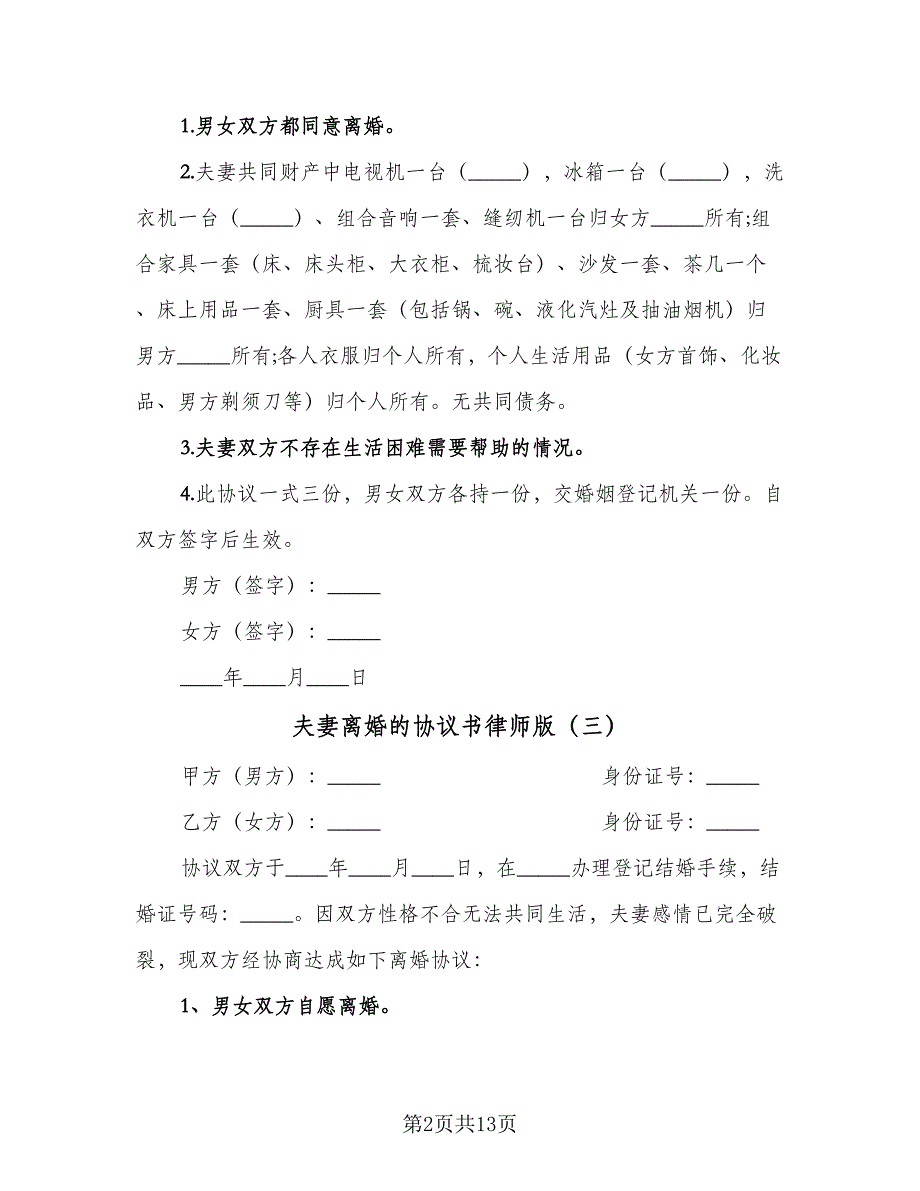 1.男女双方都同意离婚。
2.夫妻共同财产中电视机一台（_____），冰箱一台（_____），洗
衣机一台（_____）、组合音响一套、缝纫机一台归女方_____所有;组
合家具一套（床、床头柜、大衣柜、梳妆台）、沙发一套、茶几一个
、床上用品一套、厨具一套（包括锅、碗、液化汽灶及抽油烟机）归
男方_____所有;各人衣服归个人所有，个人生活用品（女方首饰、化妆
品、男方剃须刀等）归个人所有。无共同债务。
3.夫妻双方不存在生活困难需要帮助的情况。
4.此协议一式三份，男女双方各持一份，交婚姻登记机关一份。自
双方签字后生效。
男方（签字）：_____
女方（签字）：_____
____年____月____日
夫妻离婚的协议书律师版（三）
甲方（男方）：_____ 身份证号：_____
乙方（女方）：_____ 身份证号：_____
协议双方于____年____月____日，在_____办理登记结婚手续，结
婚证号码：_____。因双方性格不合无法共同生活，夫妻感情已完全破
裂，现双方经协商达成如下离婚协议：
1、男女双方自愿离婚。
第2页共13页